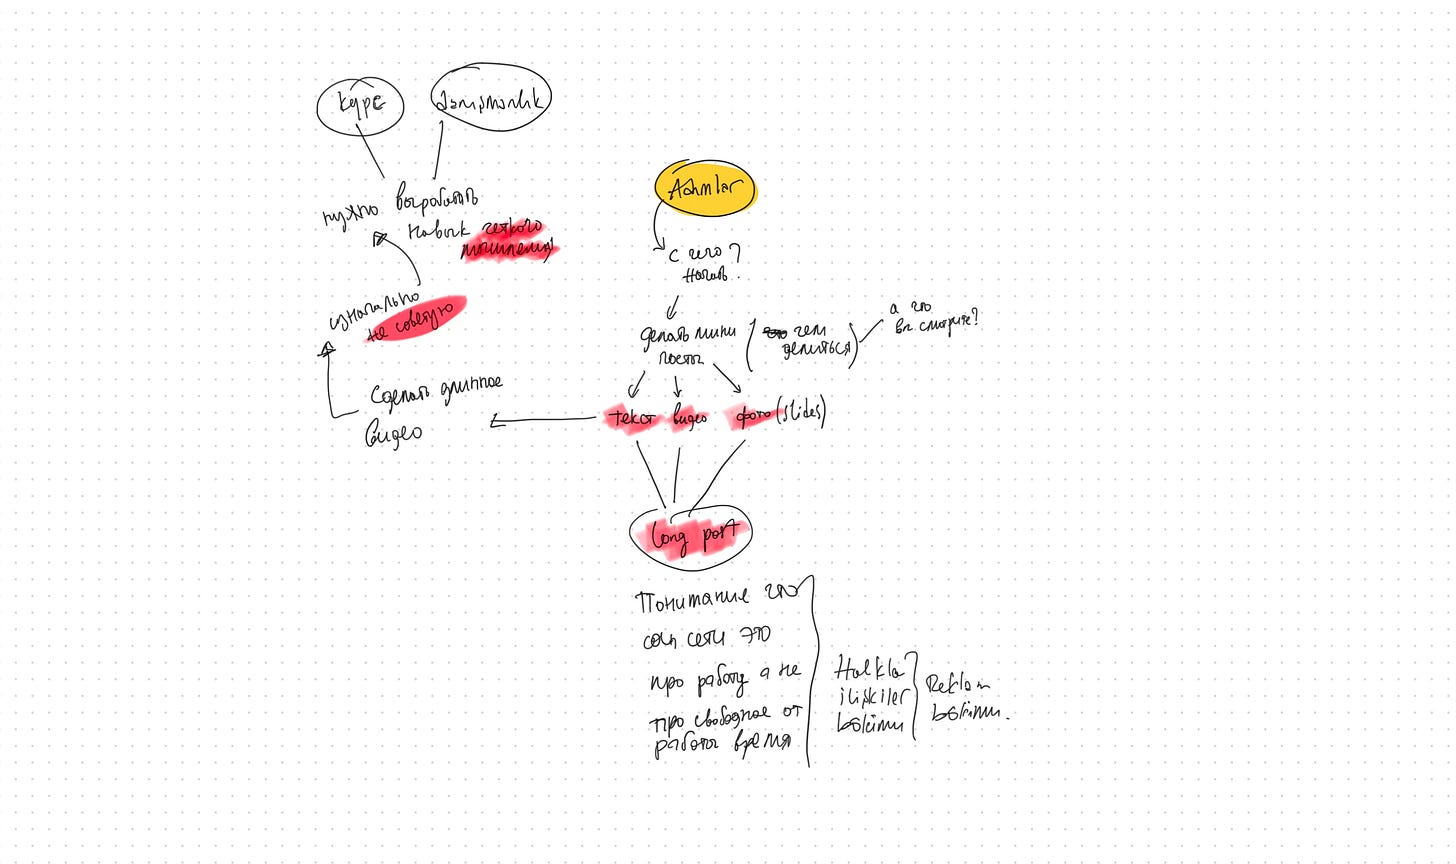 курс
danışmanlık
нужно выработать
навык четкого
мышления
изначально
не советую
Сделать длинное
видео
Adımlar
с чего?
начать?
делать мини
посты
(что чем
делиться)
а что
вы смотрите?
текст видео фото (slides)
long post
Понимание что
соц сети это
про работу а не
про свободное от
работы время
Halkla
ilişkiler
bölümü
Reklam
bölümü.